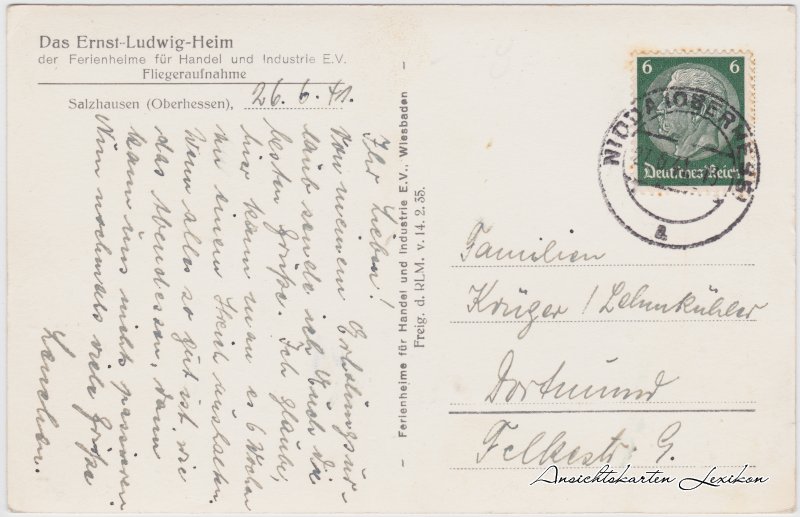 Das Ernst-Ludwig-Heim
der Ferienheime für Handel und Industrie E.V.
Fliegeraufnahme
Salzhausen (Oberhessen), 26. 6. 41.
Ihr Lieben!
Von meinem Erholungsur-
laub sende ich Euch die
besten Grüße. Ich glaube,
hier kann man es 6 Wochen
zu einem Streich aushalten.
Wenn alles so gut ist wie
das Abendessen, dann
kann uns nichts passieren.
Nun nochmals viele Grüße
Lenchen.
– Ferienheime für Handel und Industrie E.V., Wiesbaden –
Freig. d. RLM. v. 14. 2. 35.
6 6
Deutsches Reich
NIDDA (OBERHESS)
a
Familien
Krüger / Lehnkühler
Dortmund
Felkestr. 9.
Ansichtskarten Lexikon